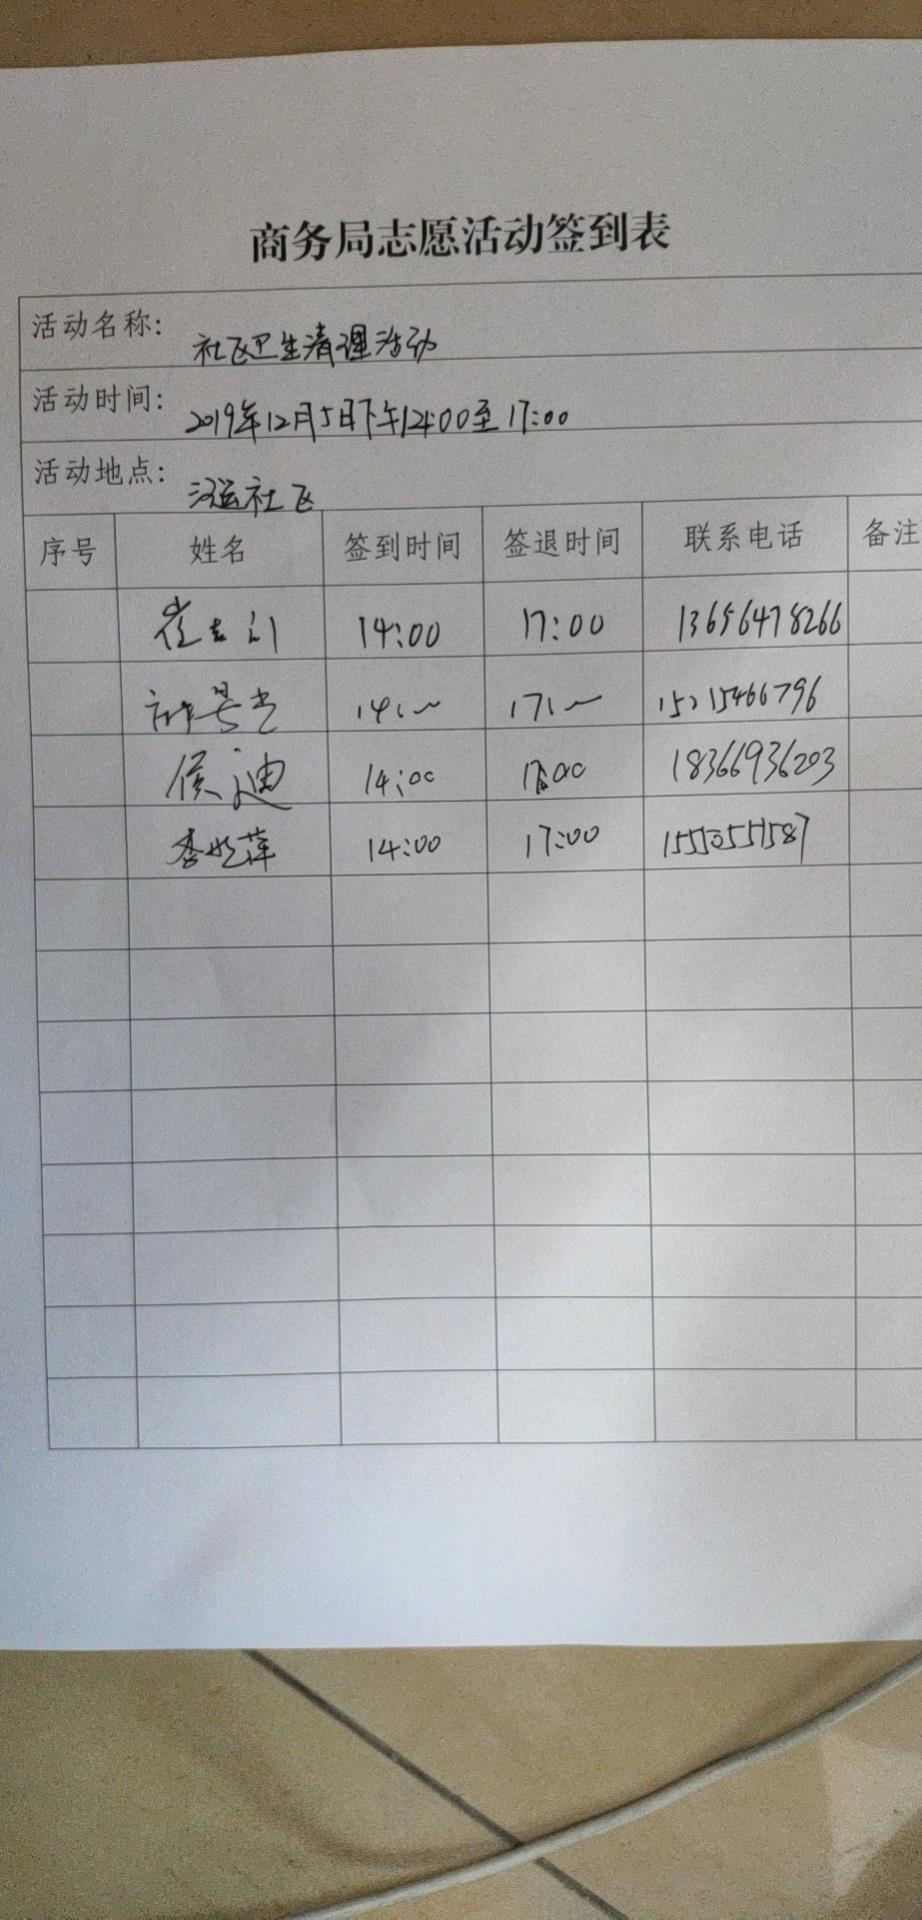 商务局志愿活动签到表
活动名称: 社区卫生清理活动
活动时间: 2019年12月5日下午14:00至17:00
活动地点: 社区
序号 姓名 签到时间 签退时间 联系电话 备注
崔 14:00 17:00 13656478266
14: 17: 15215466796
侯迪 14:00 17:00 18366936203
李 萍 14:00 17:00